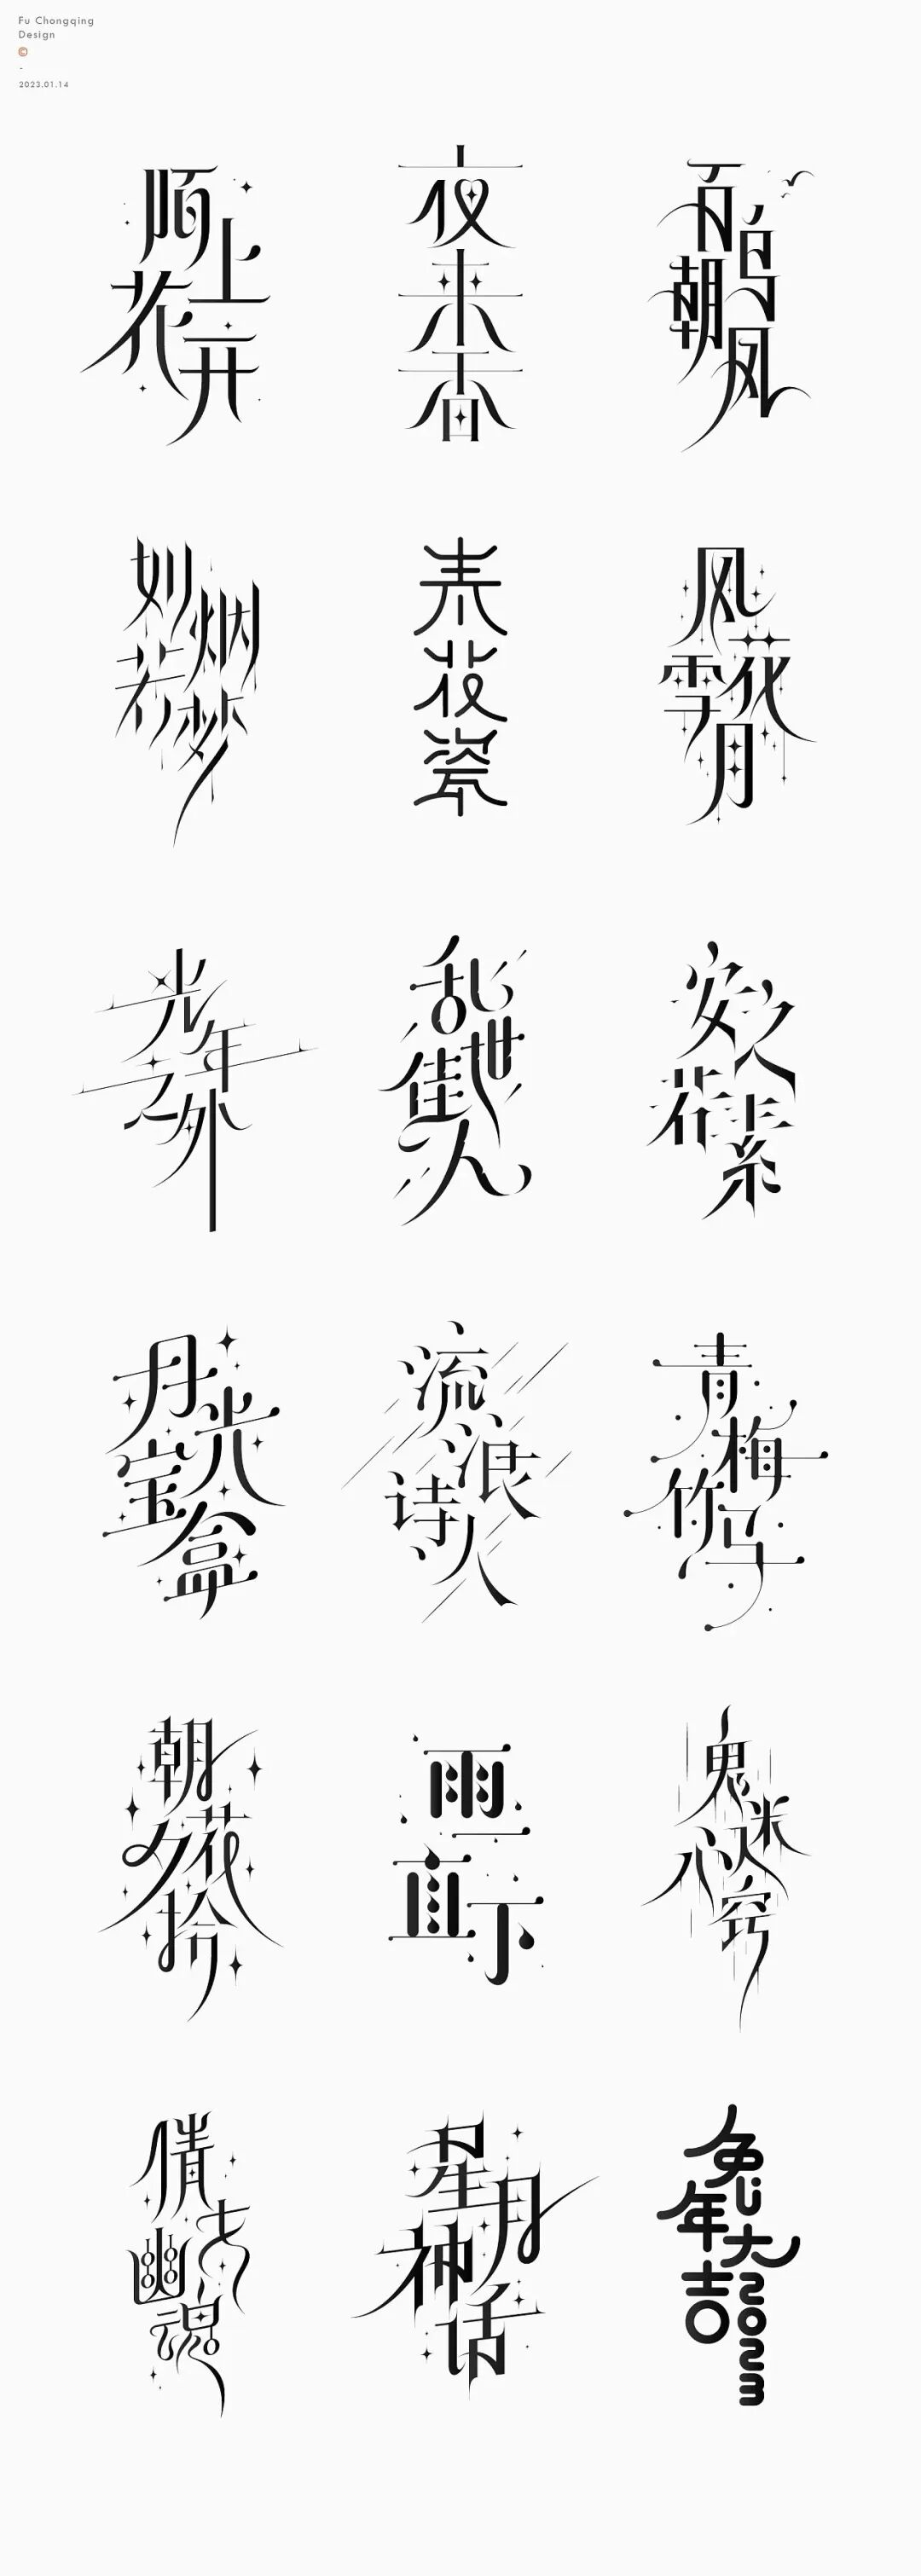 Fu Chongqing
Design
©
-
2023.01.14
陌上花开
夜来香
百鸟朝凤
如烟若梦
青花瓷
风花雪月
光年之外
乱世佳人
安之若素
月光宝盒
流浪诗人
青梅竹马
朝花夕拾
雨直下
鬼迷心窍
倩女幽魂
星月神话
兔年大吉
2023